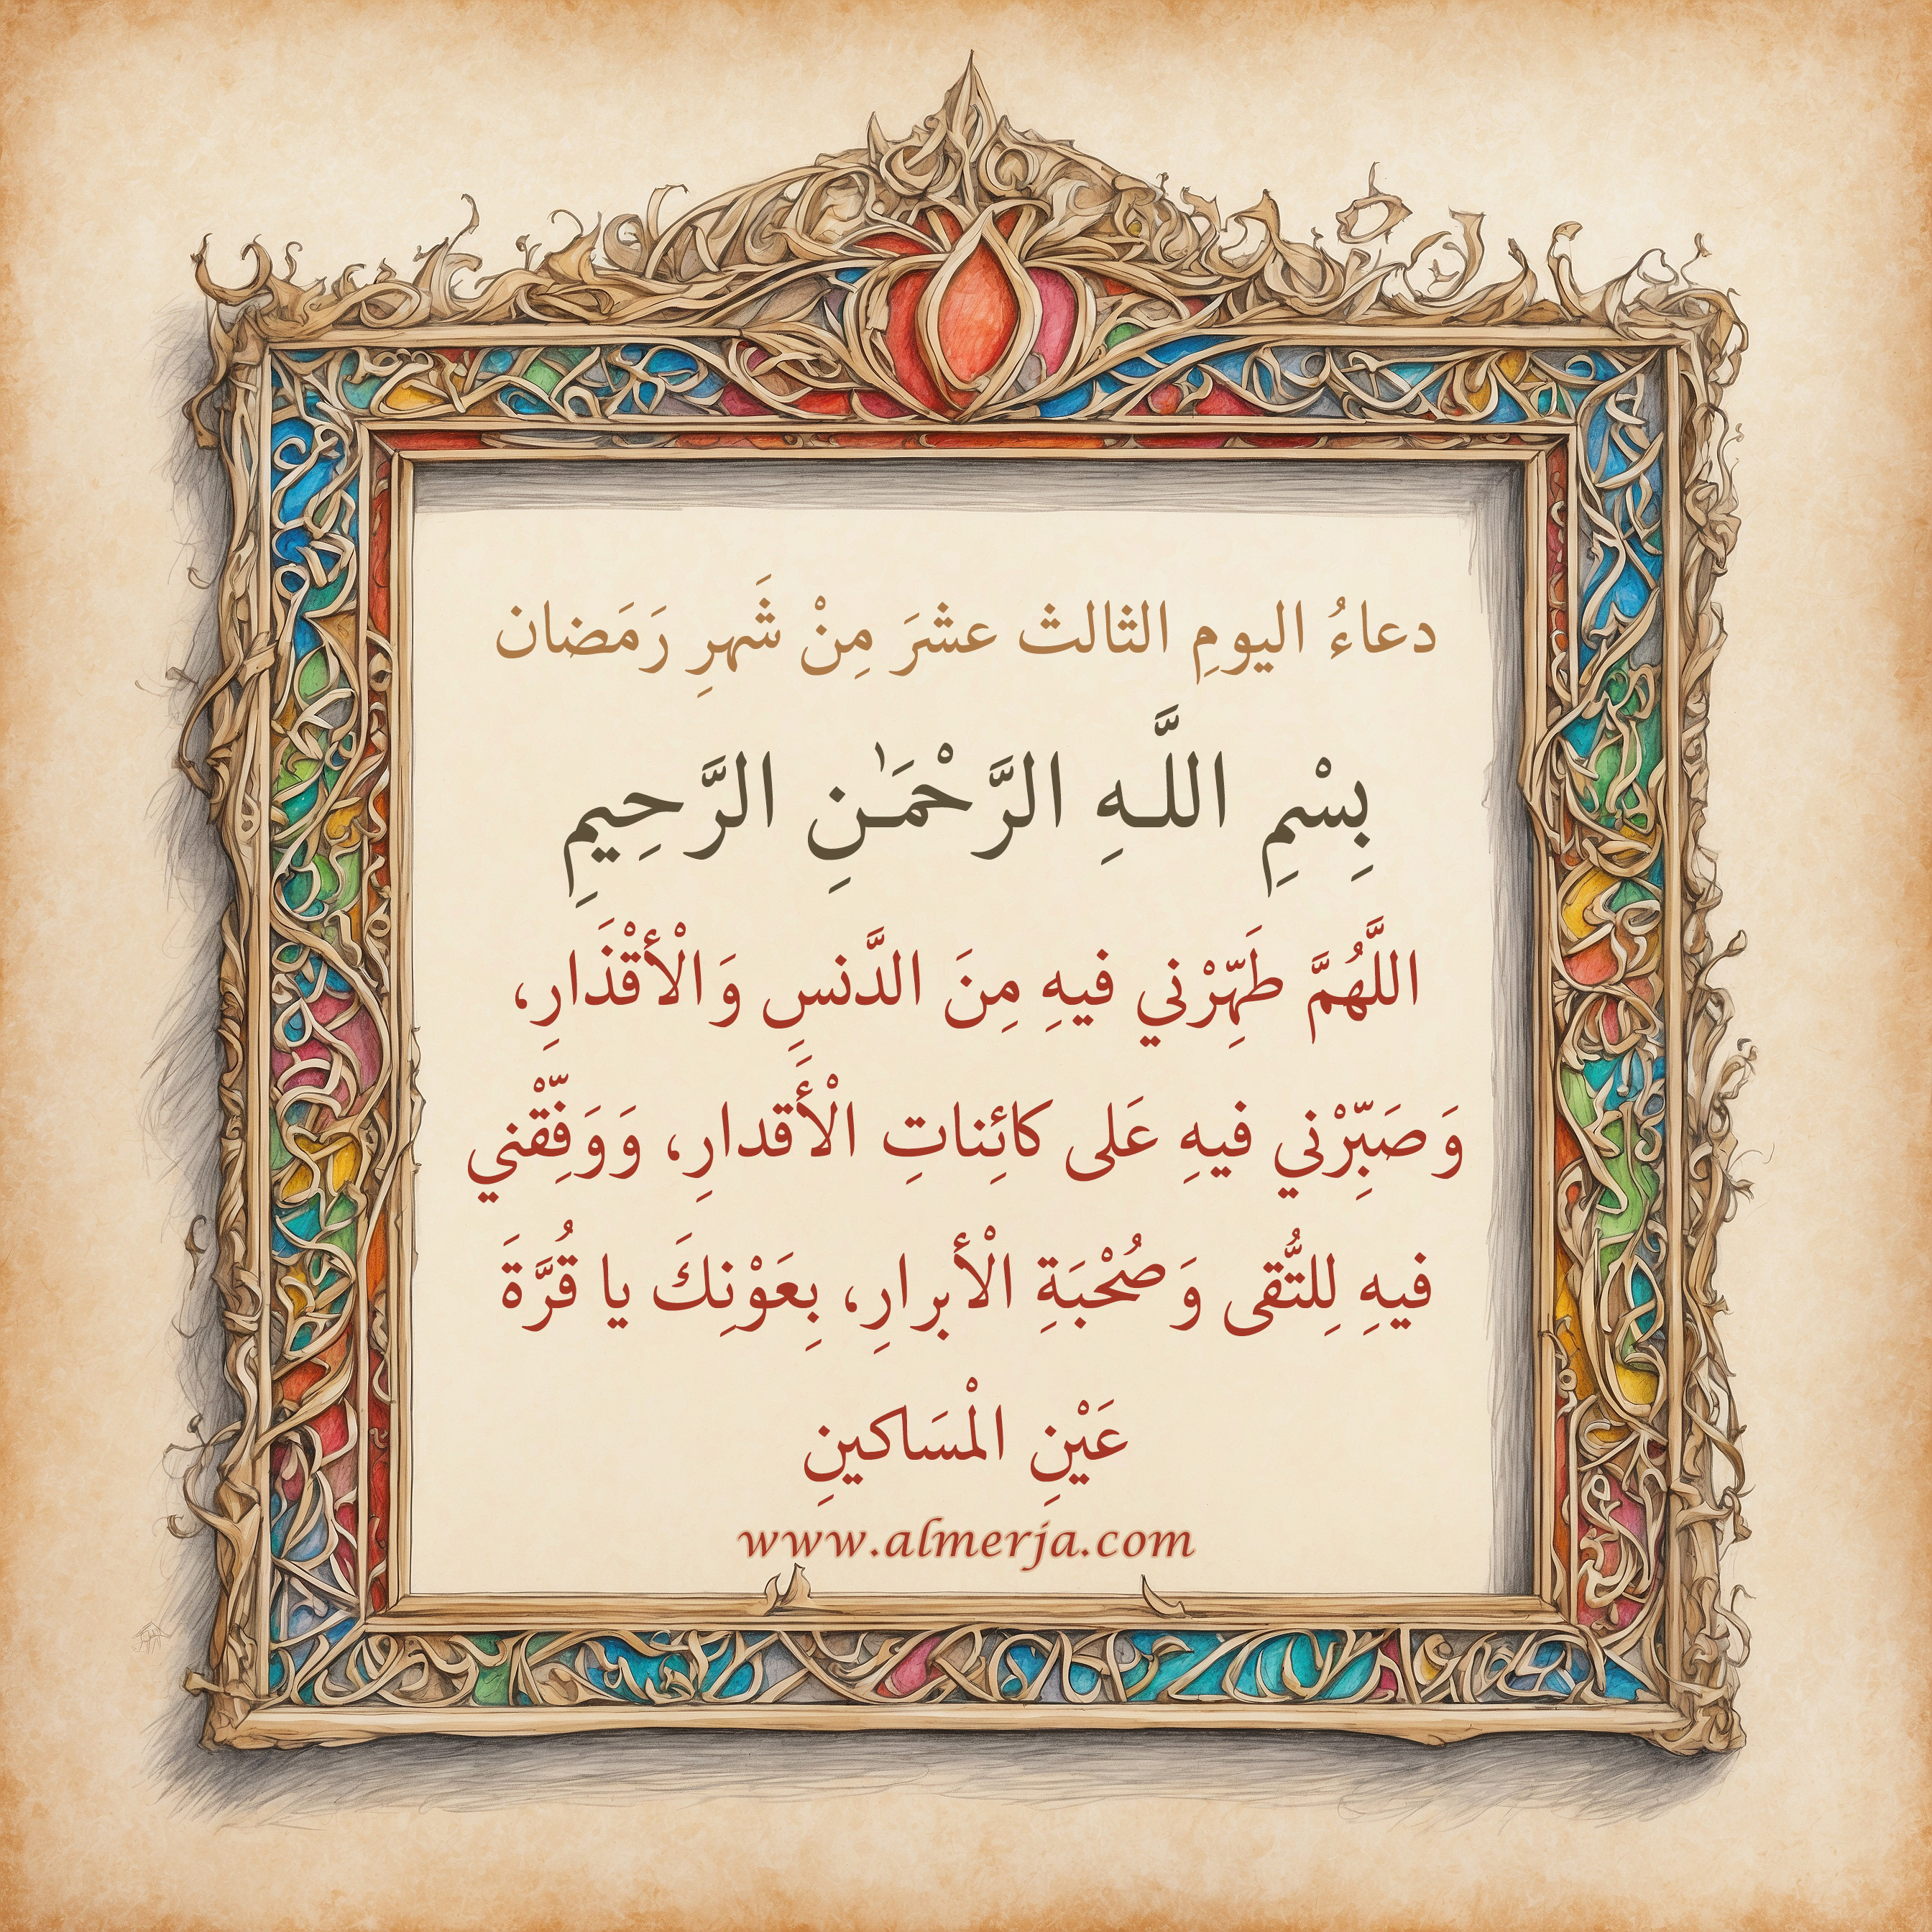 دعاءُ اليومِ الثالث عشرَ مِنْ شَهرِ رَمَضان
بِسْمِ اللَّـهِ الرَّحْمَـٰنِ الرَّحِيمِ
اللَّهُمَّ طَهِّرْني فيهِ مِنَ الدَّنسِ وَالْأَقْذَارِ،
وَصَبِّرْني فيهِ عَلى كائِناتِ الْأَقدارِ، وَوَفِّقْني
فيهِ لِلتُّقى وَصُحْبَةِ الْأبرارِ، بِعَوْنِكَ يا قُرَّةَ
عَيْنِ الْمْسَاكينِ
www.almerja.com